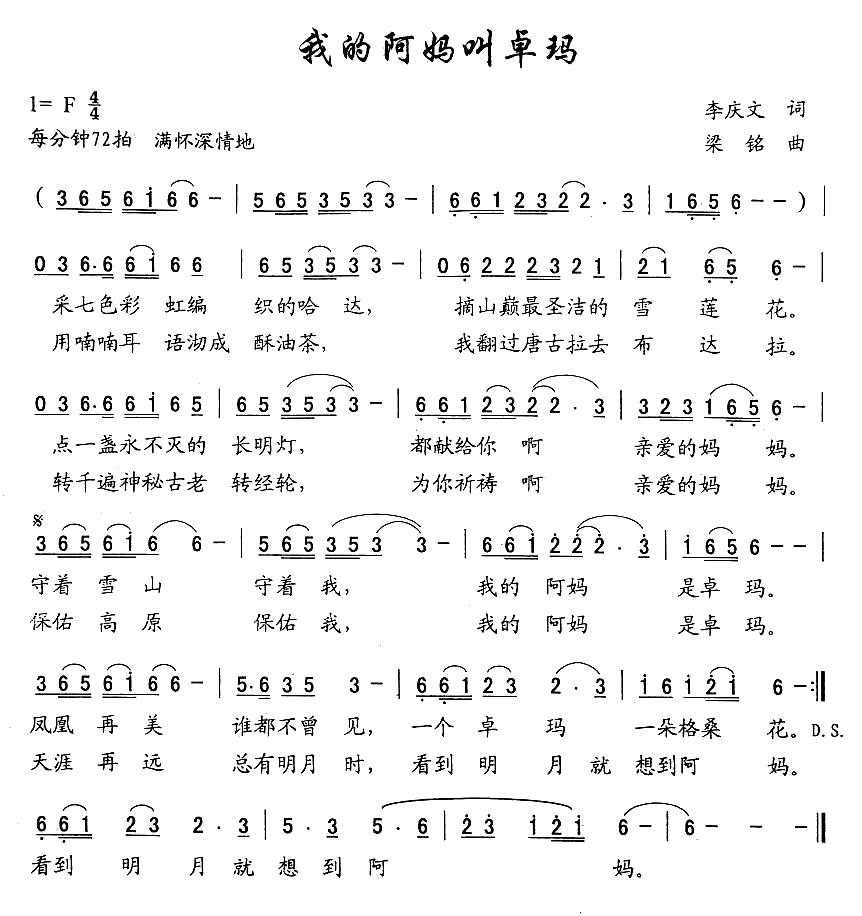 我的阿妈叫卓玛
1= F 4/4
李庆文 词
每分钟72拍 满怀深情地
梁 铭 曲
( 3 6 5 6 i 6 6 - | 5 6 5 3 5 3 3 - | 6 6 1 2 3 2 2 · 3 | 1 6 5 6 - - ) |
0 3 6 · 6 6 i 6 6 | 6 5 3 5 3 3 - | 0 6 2 2 2 3 2 1 | 2 1 6 5 6 - |
采七色彩 虹编 织的哈 达, 摘山巅最圣洁的 雪 莲 花。
用喃喃耳 语沏成 酥油茶, 我翻过唐古拉去 布 达 拉。
0 3 6 · 6 6 i 6 5 | 6 5 3 5 3 3 - | 6 6 1 2 3 2 2 · 3 | 3 2 3 1 6 5 6 - |
点一盏永不灭的 长明灯, 都献给你 啊 亲爱的妈 妈。
转千遍神秘古老 转经轮, 为你祈祷 啊 亲爱的妈 妈。
3 6 5 6 i 6 6 - | 5 6 5 3 5 3 3 - | 6 6 i 2 2 2 · 3 | i 6 5 6 - - |
守着 雪 山 守着 我, 我的 阿妈 是卓 玛。
保佑 高 原 保佑 我, 我的 阿妈 是卓 玛。
3 6 5 6 i 6 6 - | 5 · 6 3 5 3 - | 6 6 1 2 3 2 · 3 | i 6 i 2 i 6 - :||
凤凰 再 美 谁都不曾 见, 一个 卓 玛 一朵格桑 花。D.S.
天涯 再 远 总有明月 时, 看到 明 月 就 想到阿 妈。
6 6 1 2 3 2 · 3 | 5 · 3 5 · 6 | 2 3 i 2 i 6 - | 6 - - - ||
看到 明 月 就 想 到 阿 妈。